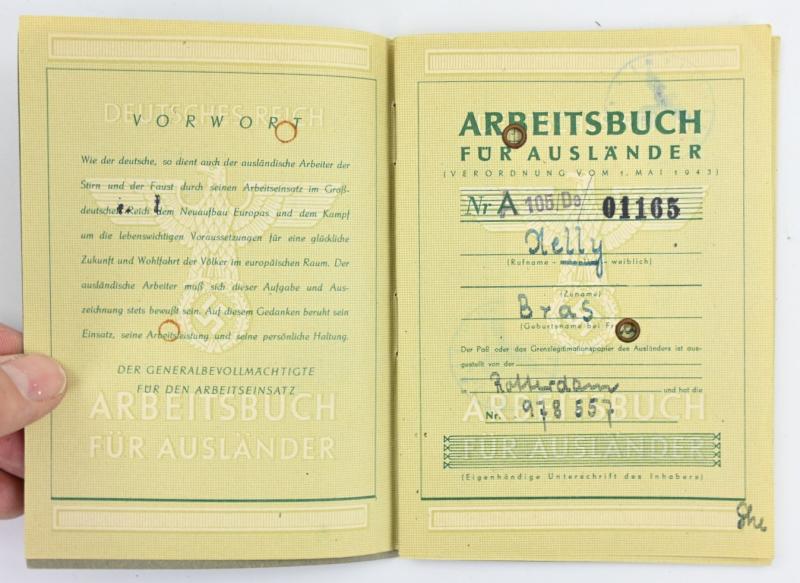 DEUTSCHES REICH
VORWORT
Wie der deutsche, so dient auch der ausländische Arbeiter der
Stirn und der Faust durch seinen Arbeitseinsatz im Groß-
deutschen Reich dem Neuaufbau Europas und dem Kampf
um die lebenswichtigen Voraussetzungen für eine glückliche
Zukunft und Wohlfahrt der Völker im europäischen Raum. Der
ausländische Arbeiter muß sich dieser Aufgabe und Aus-
zeichnung stets bewußt sein. Auf diesem Gedanken beruht sein
Einsatz, seine Arbeitsleistung und seine persönliche Haltung.
DER GENERALBEVOLLMÄCHTIGTE
FÜR DEN ARBEITSEINSATZ
ARBEITSBUCH
FÜR AUSLÄNDER
ARBEITSBUCH
FÜR AUSLÄNDER
(VERORDNUNG VOM 1. MAI 1943)
Nr A 105/ 01165
Nelly
(Rufname - männlich - weiblich)
(Zuname)
Bras
(Geburtsname bei
Der Paß oder das Grenzlegitimationspapier des Ausländers ist aus-
gestellt von der
in Rotterdam und hat die
Nr. 978557
ARBEITSBUCH
FÜR AUSLÄNDER
(Eigenhändige Unterschrift des Inhabers)